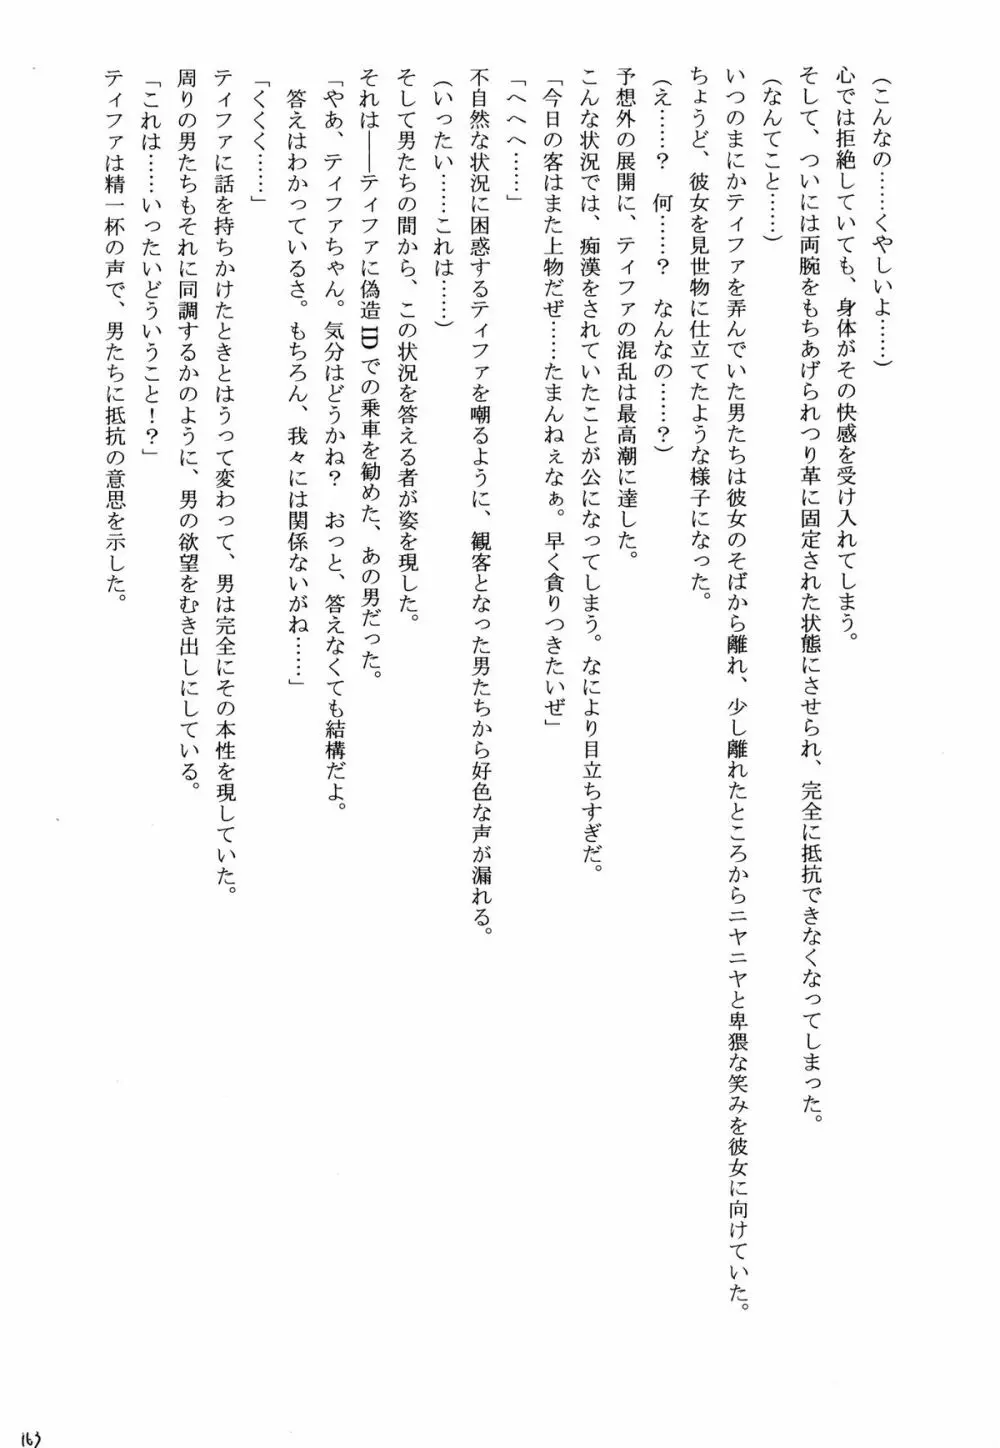 (こんなの……くやしいよ……)
心では拒絶していても、身体がその快感を受け入れてしまう。
そして、ついには両腕をもちあげられつり革に固定された状態にさせられ、完全に抵抗できなくなってしまった。
(なんてこと……)
いつのまにかティファを弄んでいた男たちは彼女のそばから離れ、少し離れたところからニヤニヤと卑猥な笑みを彼女に向けていた。
ちょうど、彼女を見世物に仕立てたような様子になった。
(え……？　何……？　なんなの……？)
予想外の展開に、ティファの混乱は最高潮に達した。
こんな状況では、痴漢をされていたことが公になってしまう。なにより目立ちすぎだ。
「今日の客はまた上物だぜ……たまんねぇなぁ。早く貪りつきたいぜ」
「へへへ……」
不自然な状況に困惑するティファを嘲るように、観客となった男たちから好色な声が漏れる。
(いったい……これは……)
そして男たちの間から、この状況を答える者が姿を現した。
それは――ティファに偽造IDでの乗車を勧めた、あの男だった。
「やあ、ティファちゃん。気分はどうかね？　おっと、答えなくても結構だよ。
答えはわかっているさ。もちろん、我々には関係ないがね……」
「くくく……」
ティファに話を持ちかけたときとはうって変わって、男は完全にその本性を現していた。
周りの男たちもそれに同調するかのように、男の欲望をむき出しにしている。
「これは……いったいどういうこと！？」
ティファは精一杯の声で、男たちに抵抗の意思を示した。
163